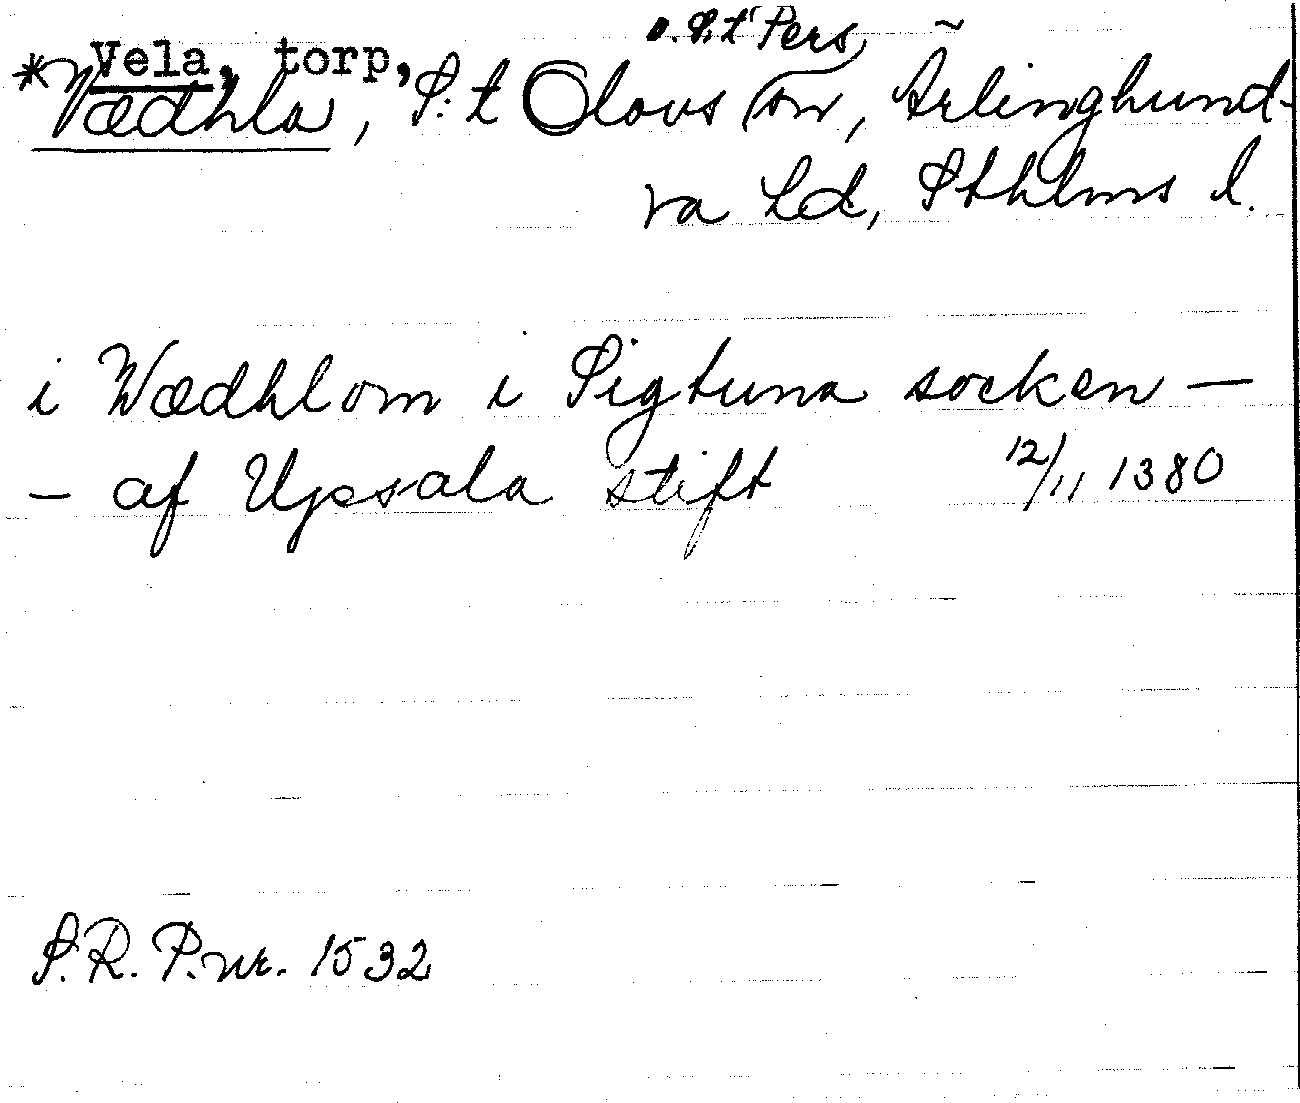 o. S:t Pers
Vela, torp,
* Vædhla, S:t Olovs sn, Ärlinghund-
ra hd, Sthlms l.
i Wædhlom i Sigtuna socken —
— af Upsala stift 12/11 1380
S.R.P. nr. 1532